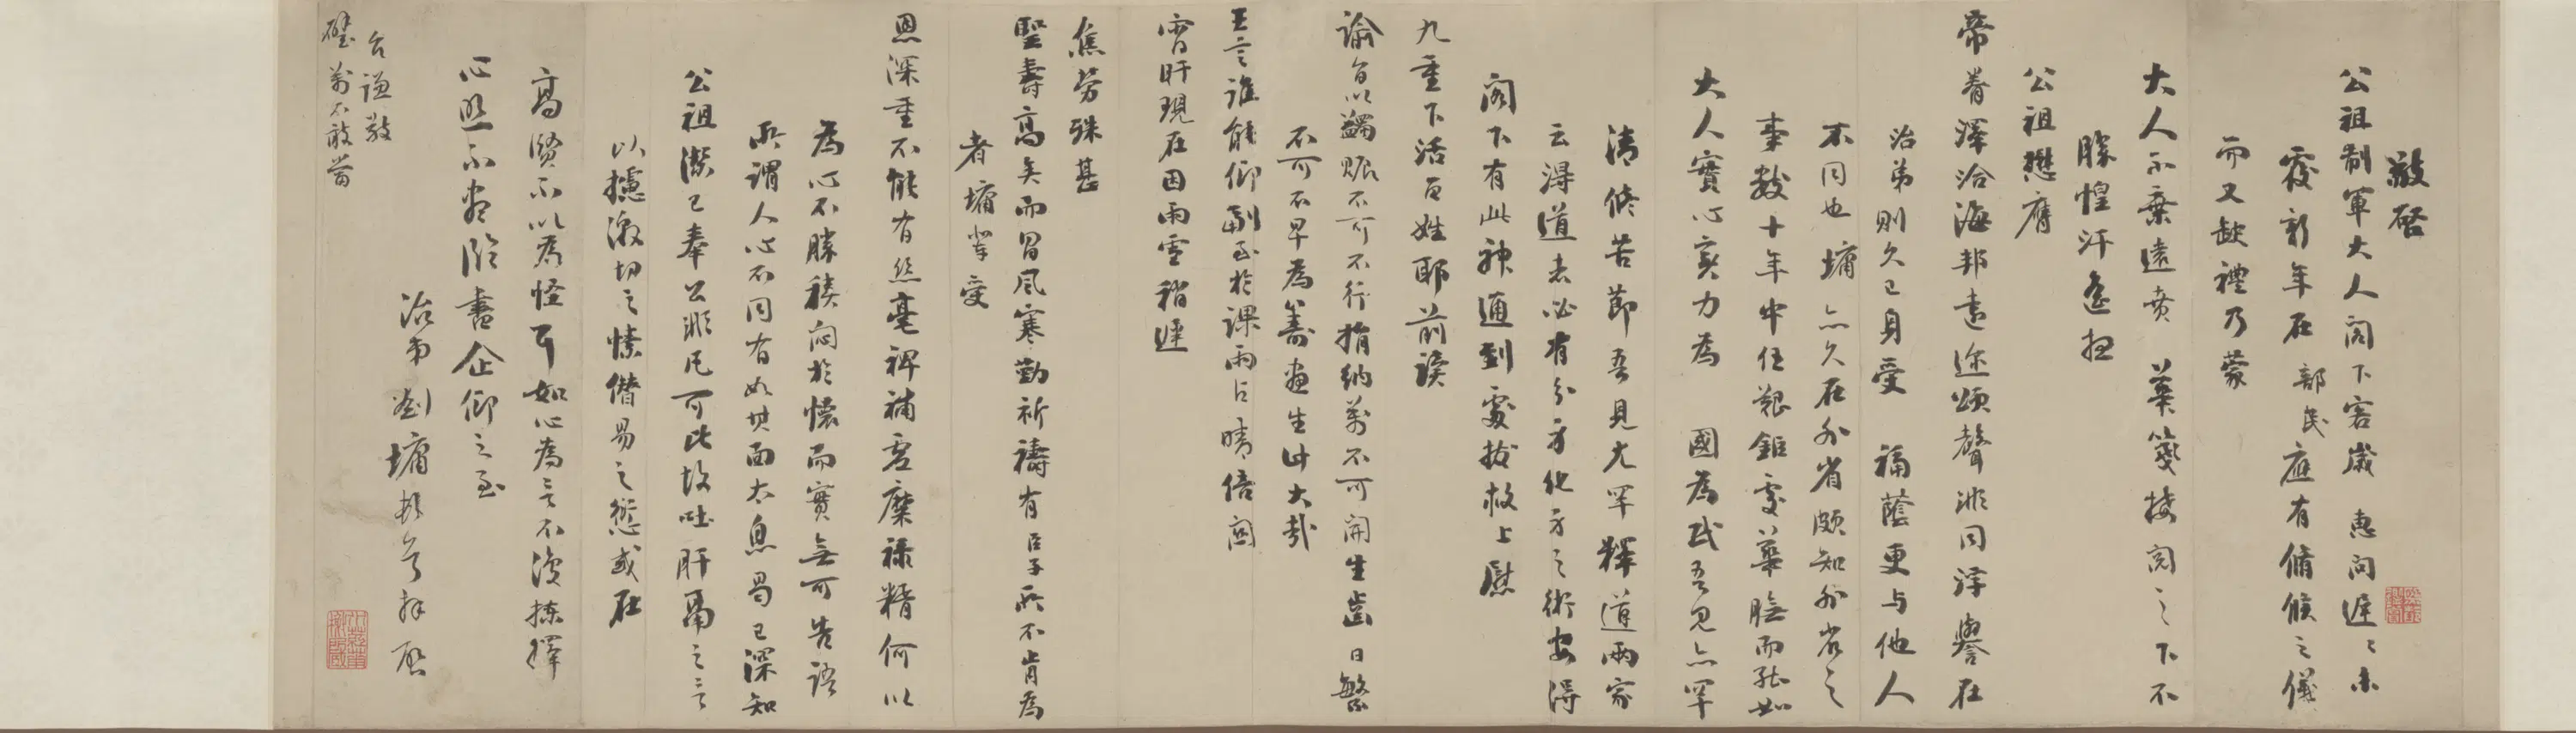 敬啓
公祖制軍大人閣下客歲　惠問遲遲未
覆新年在部民應有脩候之儀
而又缺禮乃蒙
大人不棄遠賁　華箋接閱之下不
勝惶汗
公祖懋膺
帝眷澤洽海邦遠邇頌聲非同浮譽在
治弟則久已身受　福蔭更与他人
不同也墉亦久在外省頗知外省之
事數十年中任艱鉅處華膴而能如
大人實心實力為　國為民吾見亦罕
清修苦節吾見尤罕釋道兩家
云得道者必有分身化身之術安得
閣下有此神通到處拔救上慰
九重下活百姓耶前讀
諭旨以蠲賑不可不行捐納萬不可開生齒日繁
不可不早為籌畫生計大哉
王言誰能仰副至於課雨占晴倍國
宵旰現在因雨雪稍遲
焦勞殊甚
聖壽高矣而冒風寒勤祈禱有臣子所不肯為
者墉輩受
恩深重不能有絲毫裨補虛糜祿精何以
為心不勝穢悶於懷而實無可告語
所謂人心不同有如其面太息曷已深知
公祖潔己奉公非凡可比故吐肝鬲之言
以攄激切之愫僭易之愆或在
高賢不以為怪耳如心為言不復揀擇
心照不盡臨書企仰之至
治弟劉墉頓首拜啟
台謙敬
璧萬不敢當